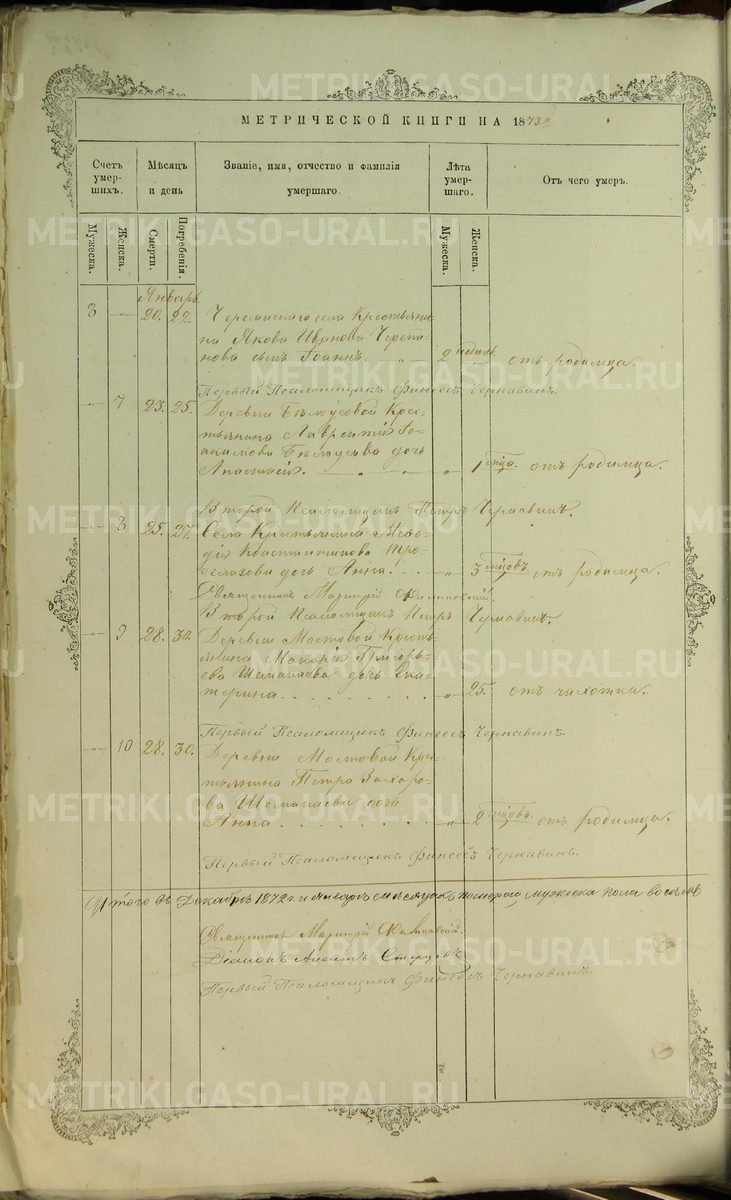 МЕТРИЧЕСКОЙ КНИГИ НА 1873 г
Счетъ умер-шихъ.
Мѣсяцъ и день
Званіе, имя, отчество и фамилія умершаго.
Лѣта умер-шаго.
Отъ чего умеръ.
Мужеска.
Женска.
Смерти.
Погребенія.
Мужеска.
Женска.
Январь.
8 20. 22. Черемисскаго села Крестьяни-
на Якова Иванова Черепа-
нова сынъ Іоаннъ. 9 недѣль. отъ родимца.
Первый Псаломщикъ Финеесъ Чернавинъ.
7 23. 25. Деревни Бѣлоусовой Крес-
тьянина Лаврентія Іо-
акимова Бѣлоусова дочь
Анастасія. 1 мѣсца. отъ родимца.
Второй Псаломщикъ Петръ Чернавинъ.
8 25. 27. Села Крестьянина Меѳо-
дія Константинова
дочь Анна. 3 мѣсцовъ. отъ родимца.
Священникъ Мартирій
Второй Псаломщикъ Петръ Чернавинъ.
9 28. 30. Деревни Мостовой Кресть
янина Макарія Григорь-
ева Шеманаева дочь Ека-
терина. 25. отъ чахотки.
Первый Псаломщикъ Финеесъ Чернавинъ.
10 28. 30. Деревни Мостовой Крес-
тьянина Петра Захаро-
ва Шеманаева дочь
Анна. 2 мѣсцовъ. отъ родимца.
Первый Псаломщикъ Финеесъ Чернавинъ.
Итого въ Декабрѣ 1872 г. и январѣ мѣсяцахъ померло мужеска пола восемь
Священникъ Мартирій
Діаконъ
Первый Псаломщикъ Финеесъ Чернавинъ.
METRIKI.GASO-URAL.RU